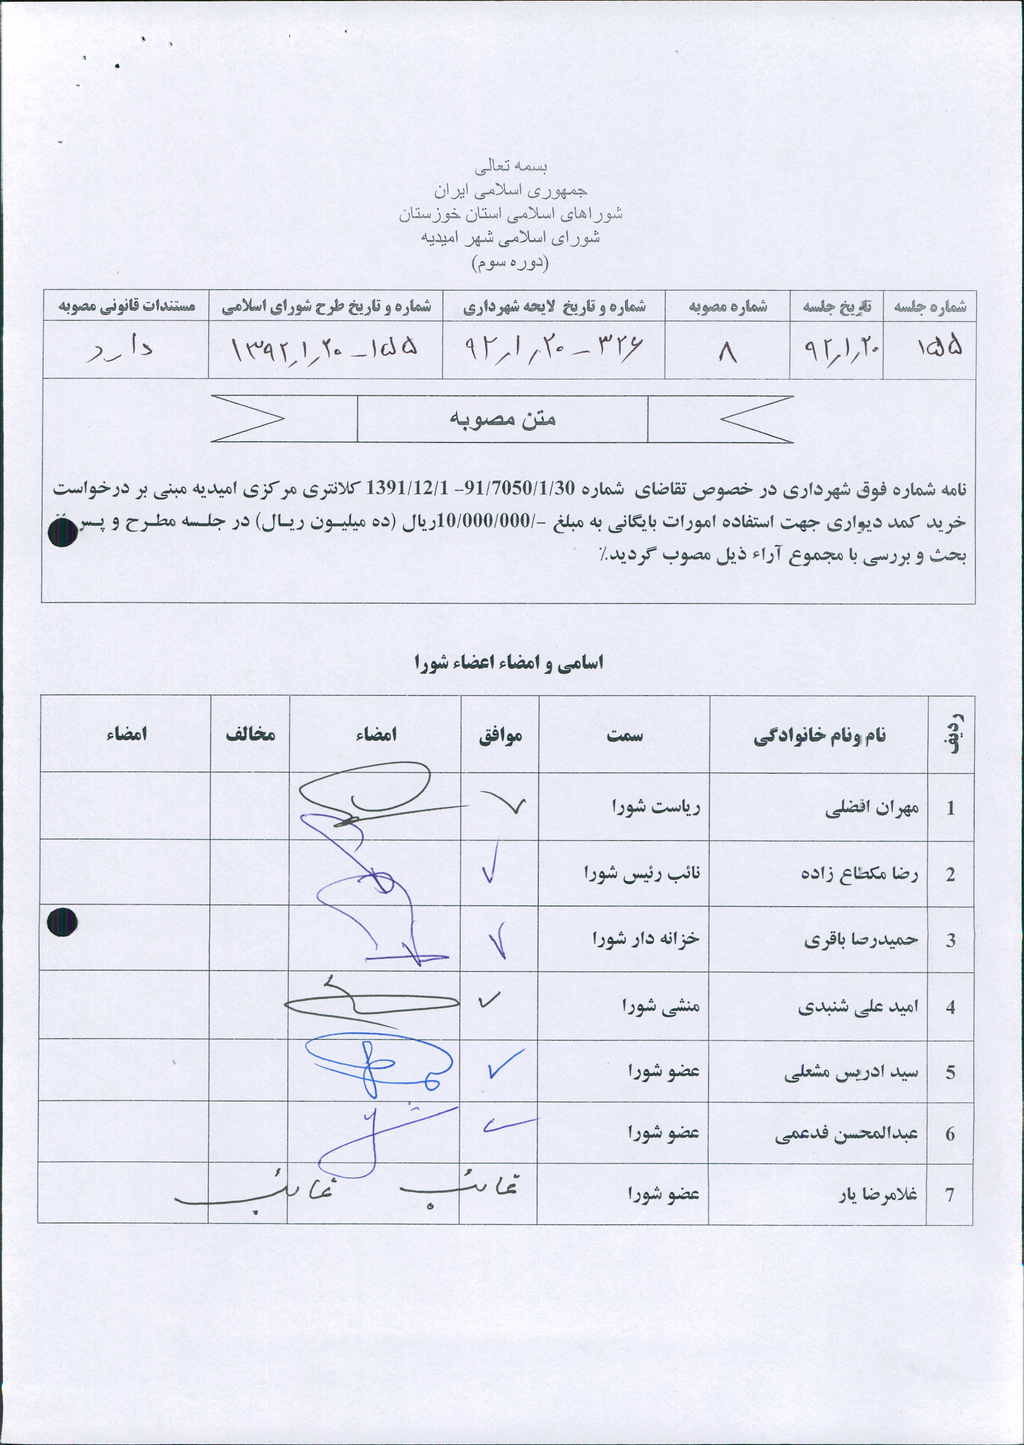 بسمه تعالی
جمهوری اسلامی ایران
شوراهای اسلامی استان خوزستان
شورای اسلامی شهر امیدیه
(دوره سوم)
شماره جلسه تاریخ جلسه شماره مصوبه شماره و تاریخ لایحه شهرداری شماره و تاریخ طرح شورای اسلامی مستندات قانونی مصوبه
۱۵۵ ۹۲/۱/۲۰ ۸ ۳۲۶ – ۹۲/۱/۲۰ ۱۵۵ – ۱۳۹۲/۱/۲۰ دارد
متن مصوبه
نامه شماره فوق شهرداری در خصوص تقاضای شماره 91/7050/1/30– 1391/12/1 کلانتری مرکزی امیدیه مبنی بر درخواست
خرید کمد دیواری جهت استفاده امورات بایگانی به مبلغ -/10/000/000ریال (ده میلیون ریال) در جلسه مطرح و پس
بحث و بررسی با مجموع آراء ذیل مصوب گردید٪
اسامی و امضاء اعضاء شورا
ردیف نام ونام خانوادگی سمت موافق امضاء مخالف امضاء
1 مهران افضلی ریاست شورا ✓
2 رضا مکطاع زاده نائب رئیس شورا ✓
3 حمیدرضا باقری خزانه دار شورا ✓
4 امید علی شنبدی منشی شورا ✓
5 سید ادریس مشعلی عضو شورا ✓
6 عبدالمحسن فدعمی عضو شورا ✓
7 غلامرضا یار عضو شورا غائب غائب